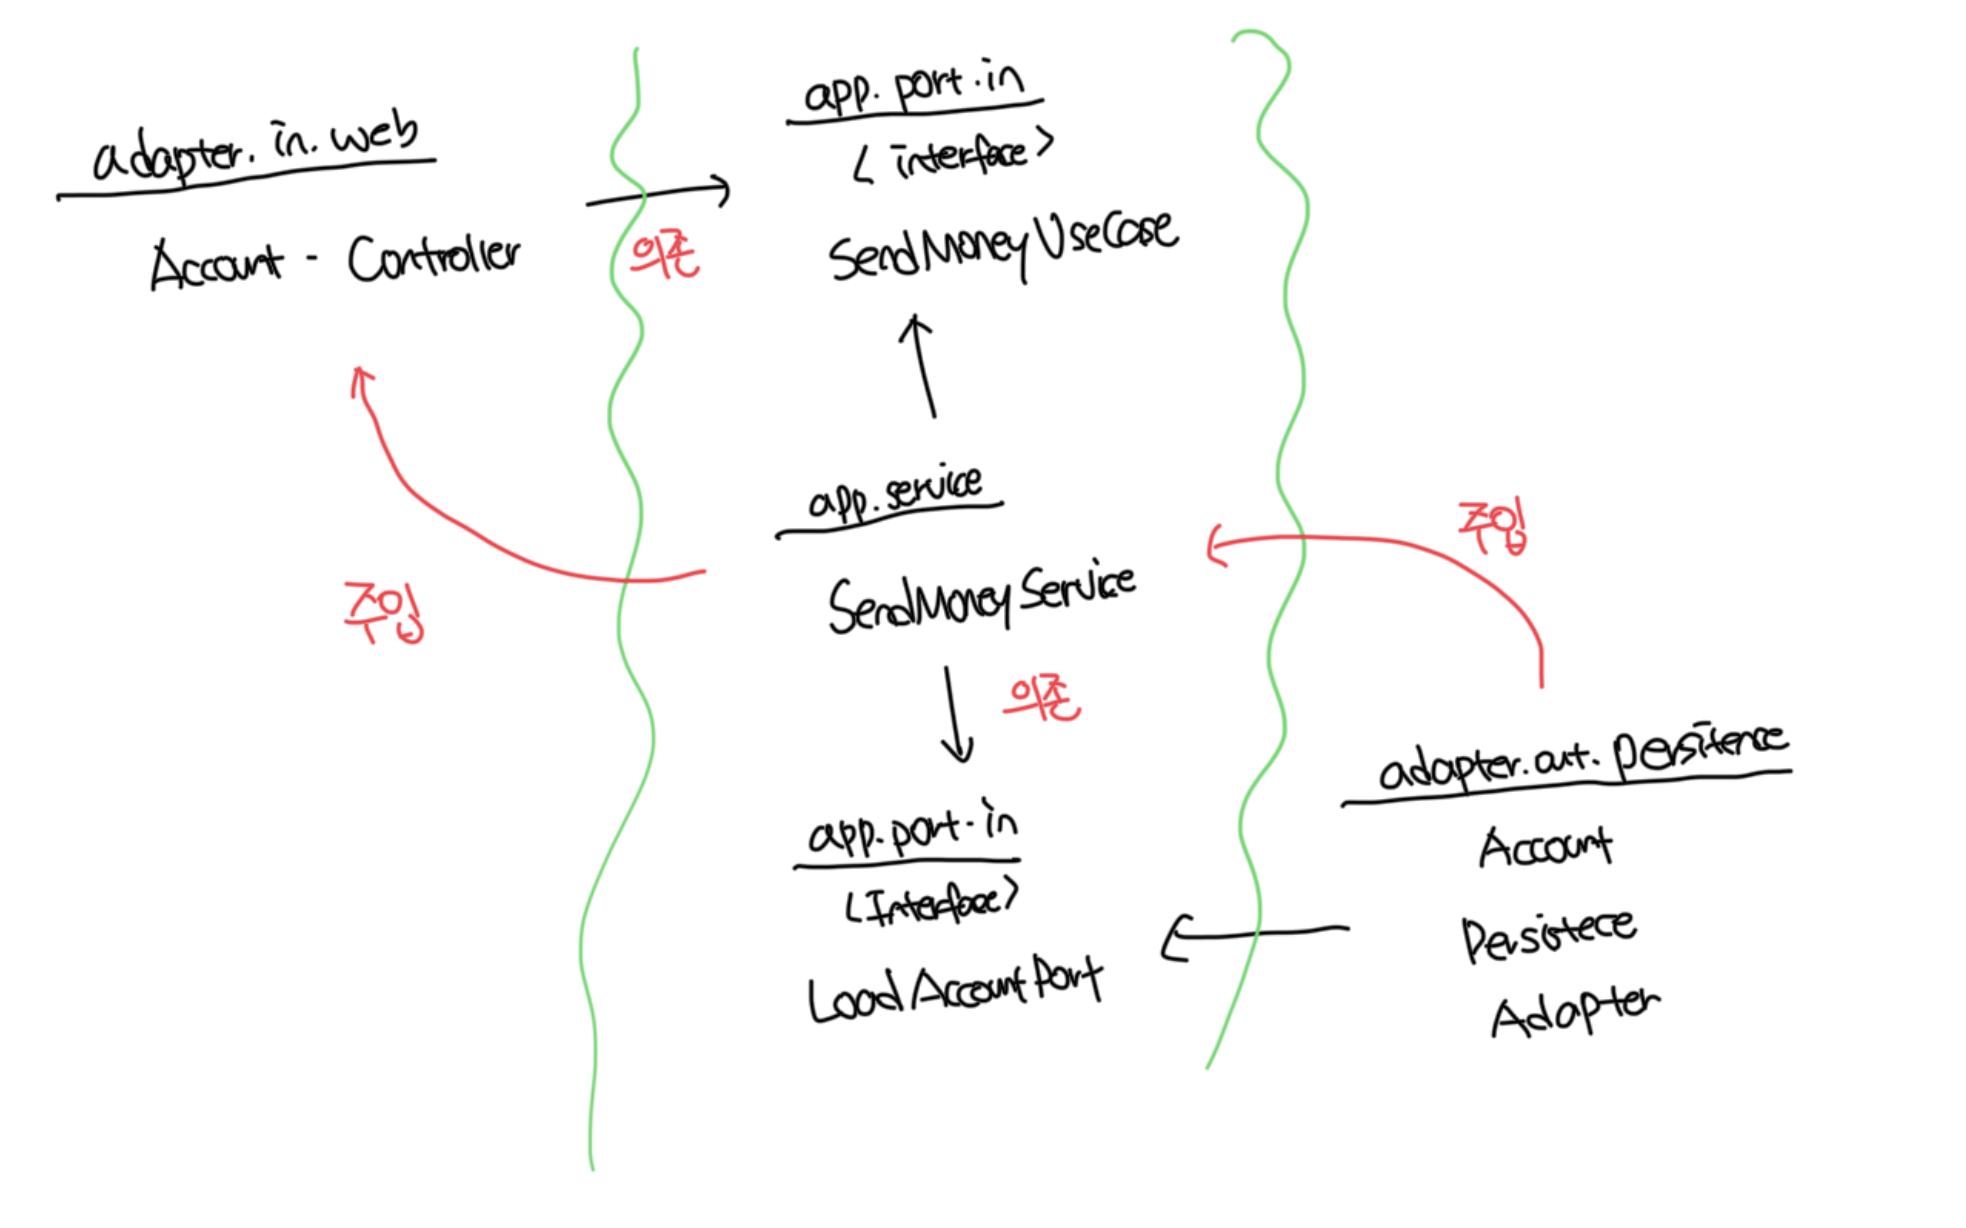 adapter.in.web
Account - Controller
주입
의존
app.port.in
<interface>
SendMoneyUseCase
app.service
SendMoneyService
의존
app.port.in
<Interface>
LoadAccountPort
주입
adapter.out.persitence
Account
Persistece
Adapter